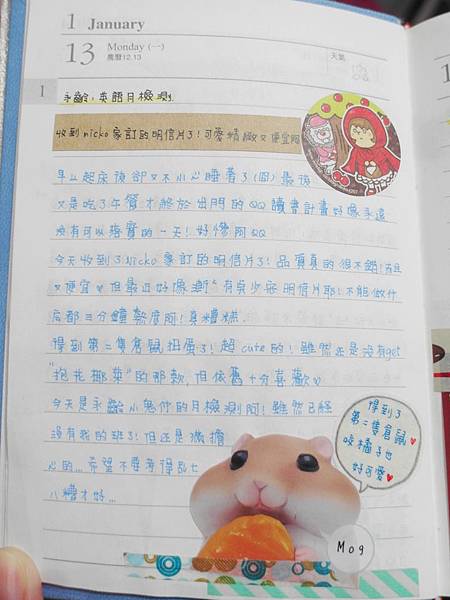 1 January
13 Monday (一)
農曆12.13
天氣
1
永齡：英語月檢測。
收到nicko家訂的明信片了！可愛精緻又便宜阿
早上起床後卻又不小心睡著了(囧)最後
又是吃了午餐才終於出門的QQ讀書計畫好像永遠
沒有可以落實的一天！好慘阿QQ
今天收到了Nicko家訂的明信片了！品質真的很不錯！而且
又便宜♥但最近好像漸漸有莫少寄明信片耶！不能做什
麼都三分鐘熱度阿！真糟糕.
得到第二隻倉鼠扭蛋了！超cute的！雖然還是沒有get
"抱花椰菜"的那款，但依舊十分喜歡♥
今天是永齡小鬼們的月檢測阿！雖然已經
沒有我的班了！但還是滿擔
心的...希望不要考得亂七
八糟才好...
得到了
第二隻倉鼠♥
咬橘子也
好可愛♥
Mog